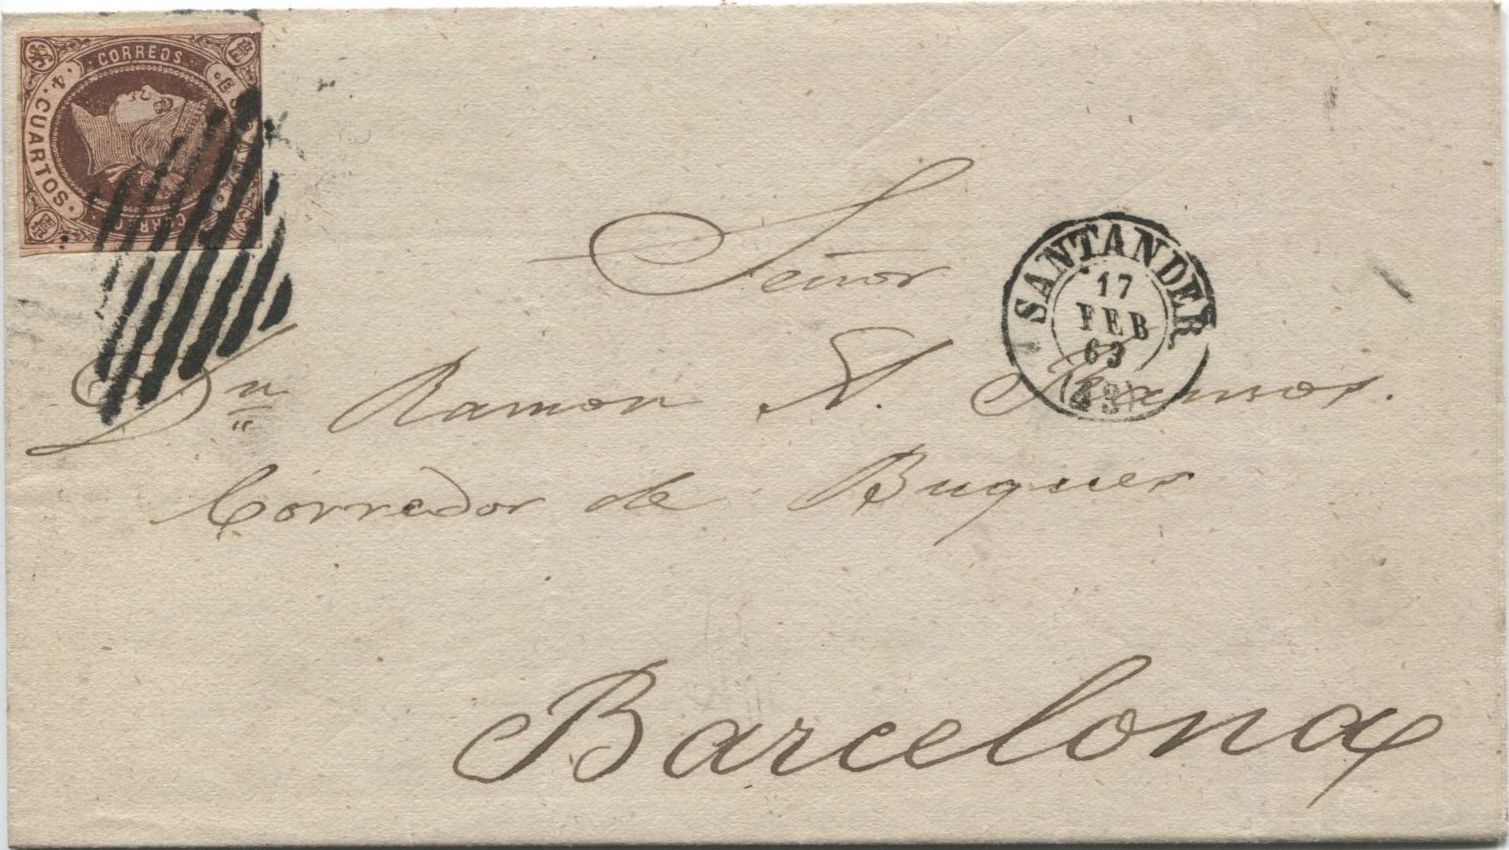 CORREOS
4 CUARTOS.
Señor
SANTANDER
17
FEB
63
(43)
Dn Ramon A. Ramos.
Corredor de Buques
Barcelona